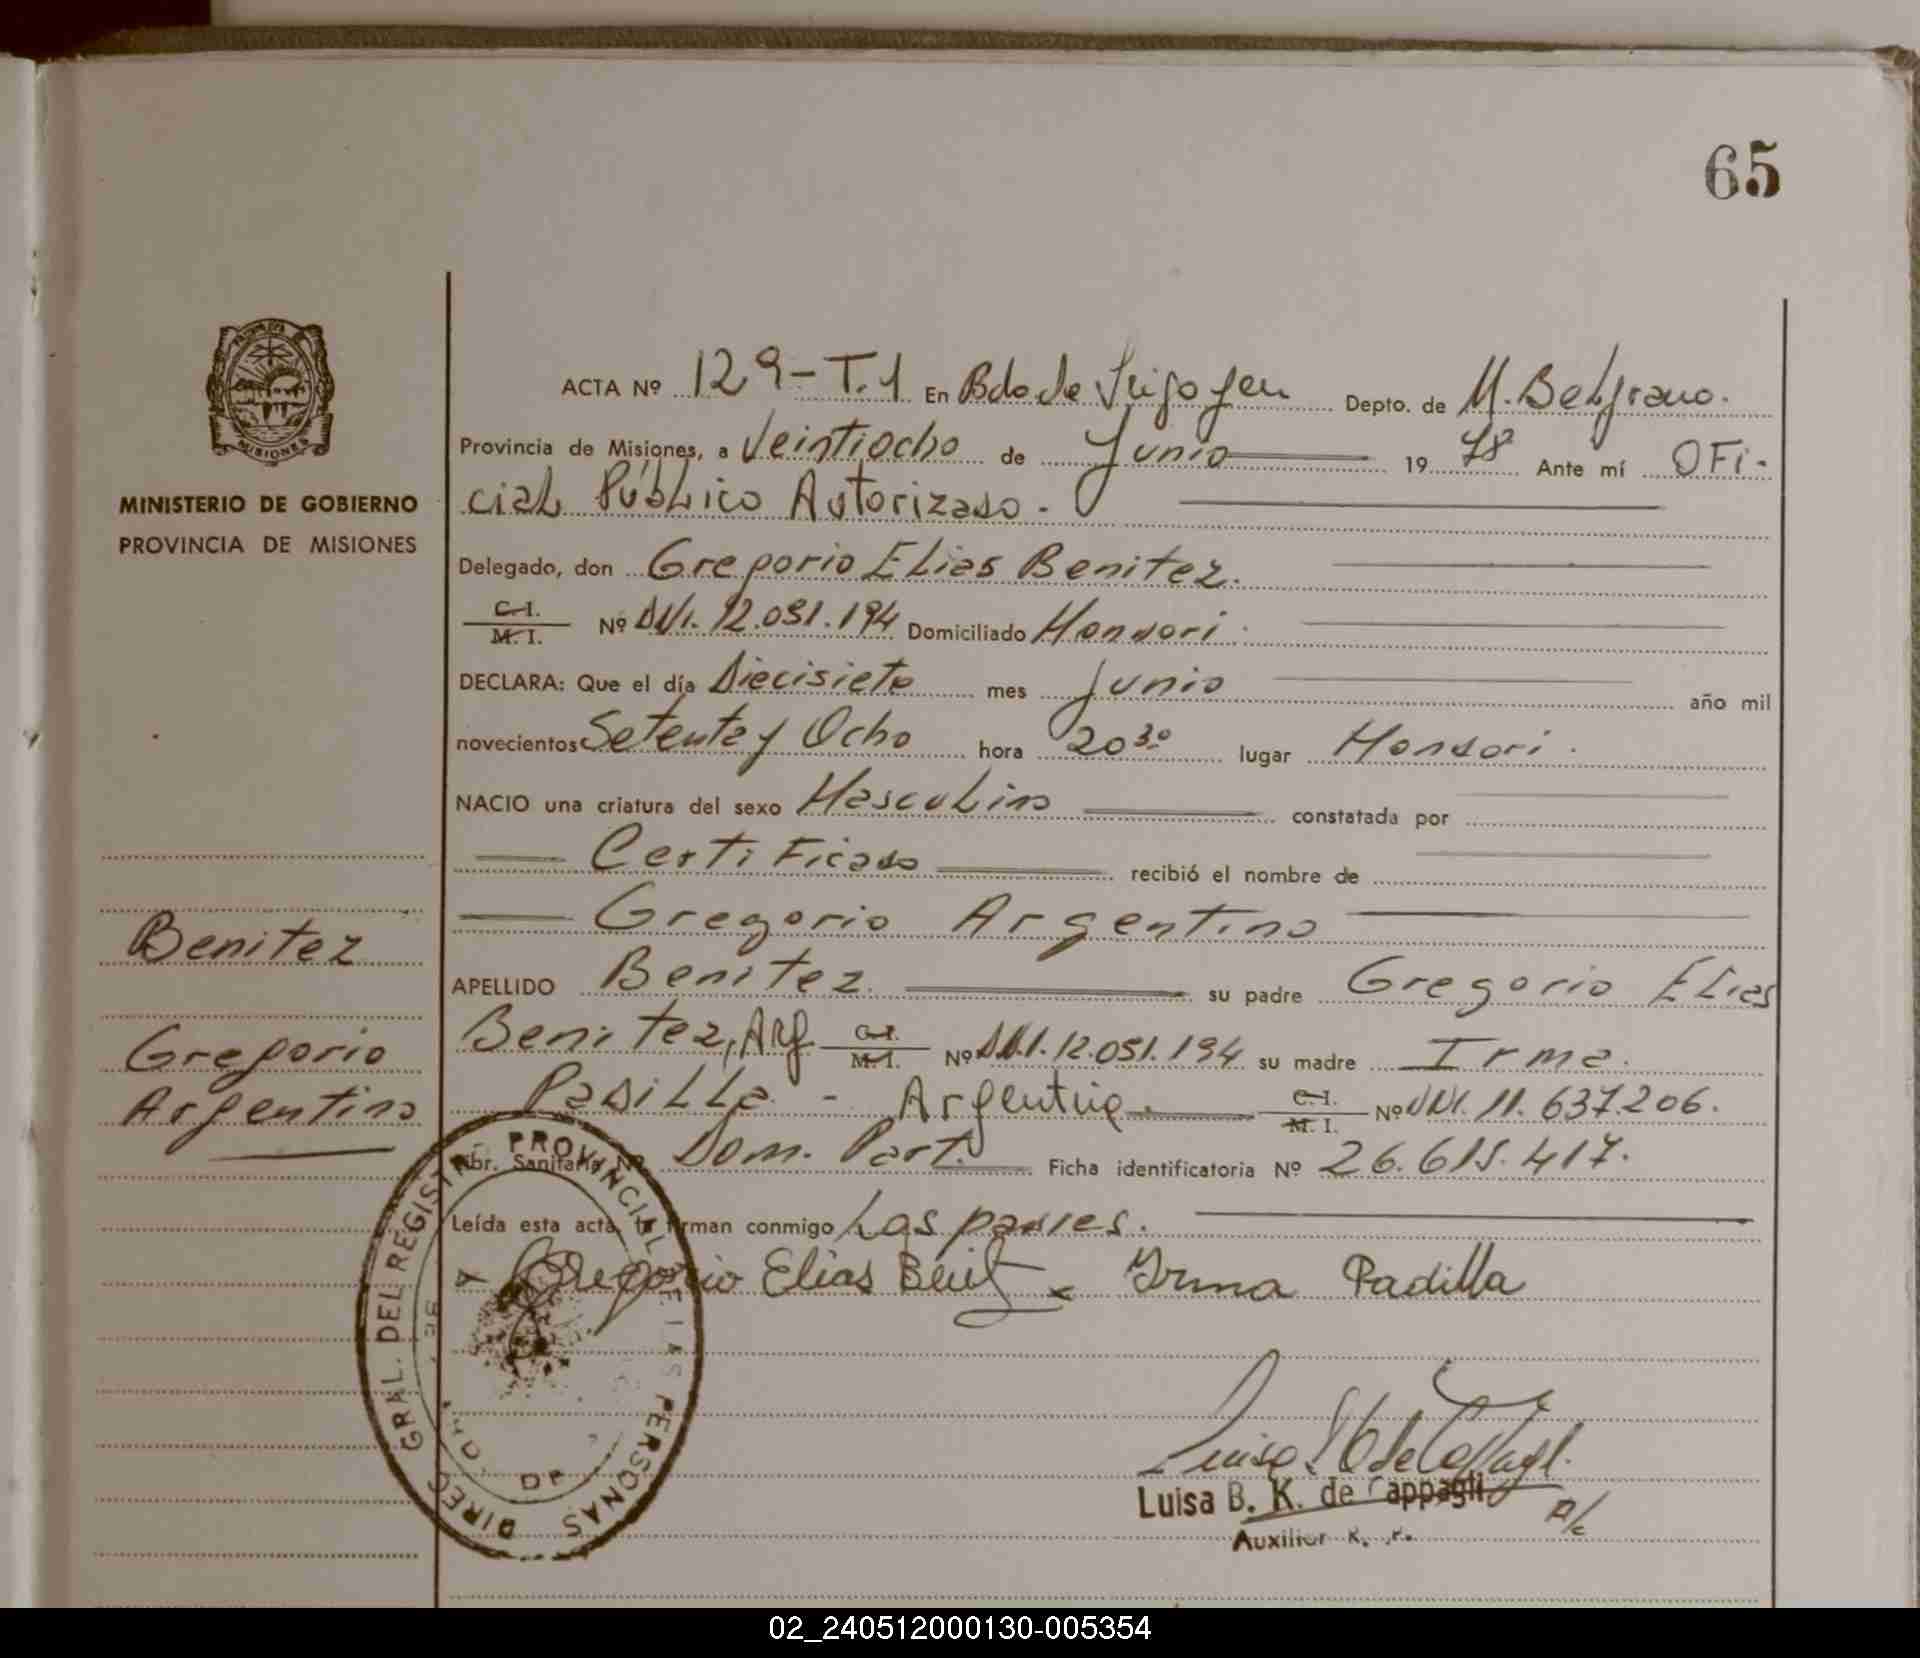 65
PROVINCIA DE
MISIONES
MINISTERIO DE GOBIERNO
PROVINCIA DE MISIONES
ACTA Nº 129-T.1 En Bdo de Irigoyen Depto. de M. Belgrano.
Provincia de Misiones, a Veintiocho de Junio 19 78 Ante mí OFi-
ciaL PúbLico Autorizado.
Delegado, don Gregorio ELias Benitez.
C.I.
M.I. Nº DNI. 12.051.194 Domiciliado Mondori.
DECLARA: Que el día Diecisiete mes Junio año mil
novecientos Setenta y Ocho hora 20 30 lugar Mondori.
NACIO una criatura del sexo MascuLino constatada por
CertiFicado recibió el nombre de
Gregorio Argentino
APELLIDO Benitez su padre Gregorio ELias
Benitez, Arg C.I. M.I. Nº DNI. 12.051.194 su madre Irma.
PadiLLa - Argentina. C.I. M.I. Nº DNI. 11.637.206.
Libr. Sanitaria Nº Dom. Part. Ficha identificatoria Nº 26.615.417.
Leída esta acta, la firman conmigo Los padres.
Gregorio Elias Benit Irma Padilla
Benitez
Gregorio
Argentino
DIREC. GRAL. DEL REGISTRO PROVINCIAL DE LAS PERSONAS
Luisa B. K. de Cappagli
Auxiliar
02_240512000130-005354